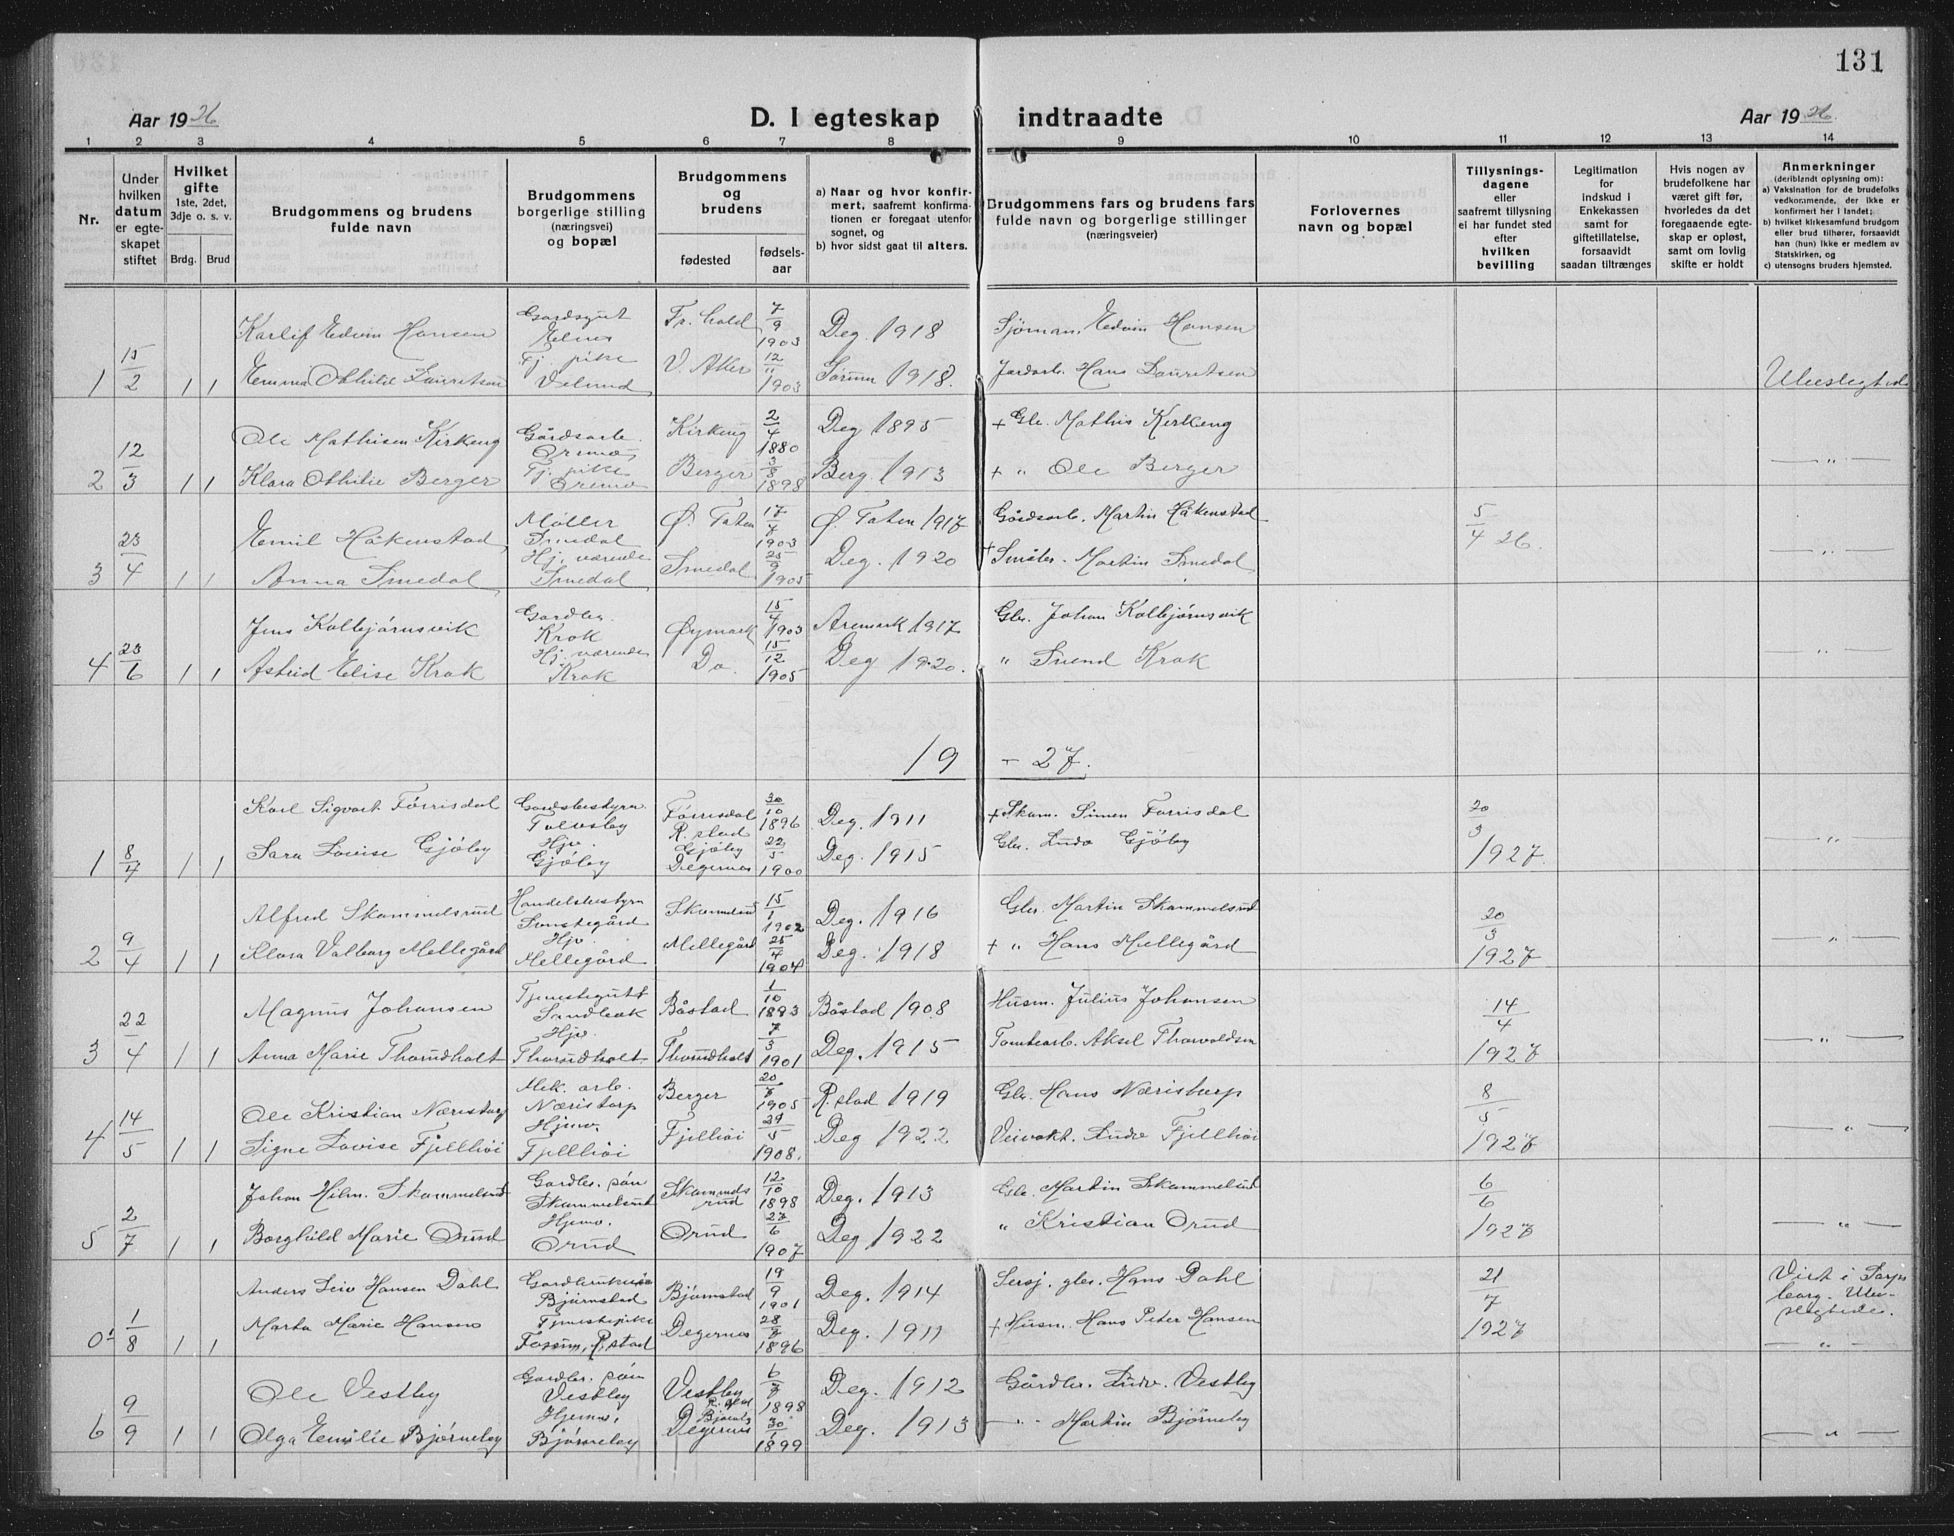 131
Aar 1926
D. I egteskap
indtraadte
Aar 1926.
1 2 3 4 5 6 7 8 9 10 11 12 13 14
Nr.
Under hvilken datum er egteskapet stiftet
Hvilket gifte 1ste, 2det, 3dje o. s. v.
Brdg. Brud
Brudgommens og brudens fulde navn
Brudgommens borgerlige stilling (næringsvei) og bopæl
Brudgommens og brudens
fødested
fødsels-aar
a) Naar og hvor konfirmert, saafremt konfirmationen er foregaat utenfor sognet, og
b) hvor sidst gaat til alters.
Brudgommens fars og brudens fars fulde navn og borgerlige stillinger (næringsveier)
Forlovernes navn og bopæl
Tillysningsdagene eller saafremt tillysning ei har fundet sted efter hvilken bevilling
Legitimation for indskud i Enkekassen samt for giftetillatelse, forsaavidt saadan tiltrænges
Hvis nogen av brudefolkene har været gift før, hvorledes da det foregaaende egteskap er opløst, samt om lovlig skifte er holdt
Anmerkninger
(deriblandt oplysning om):
a) Vaksination for de brudefolks vedkommende, der ikke er konfirmert her i landet;
b) hvilket kirkesamfund brudgom eller brud tilhører, forsaavidt han (hun) ikke er medlem av Statskirken, og
c) utensogns bruders hjemsted.
1 15/2 1 1 Karlif Edvin Hansen Gardsgut 7/9 1903 Deg. 1918 Sjöman. Edvin Hansen
Emma Othilie Lauritsen Tj. pike V. Aker 12/11 1903 1918. Jordarb. Hans Lauritsen
2 12/3 1 1 Ole Mathisen Kirkeng Gårdsarb. Kirkeng 2/4 1880 Deg 1895 + Gbr. Mathis Kirkeng
Klara Othilie Berger Tj. pike Berger 3/8 1898 Berg. 1913 + " Ole Berger — " —
3 23/4 1 1 Emil Håkenstad Møller Smedal 17/4 1903 1917 Gårdsarb. Martin Håkenstad 5/4 26.
Anna Smedal Hj. værende Smedal Smedal 25/9 1905 Deg. 1920 + Martin Smedal — " —
4 23/6 1 1 Jens Kolbjørnsvik Krok Øymark 15/4 1903 Aremark 1917 Gbr. Johan Kolbjørnsvik
Astrid Elise Krok Hj. værende Krok Do 15/12 1905 Deg 1920. " Svend Krok — " —
19 - 27.
1 8/4 1 1 Karl Sigvart Førrisdal Gardsbestyrer Førrisdal R. stad 30/10 1896 Deg. 1911 + Simen Førrisdal 20/3
Sara Lovise Gjøby Hjv. Gjøby Gjøby Degernes 22/5 1900 Deg. 1915 Gbr. Gjöby 1927. — " —
2 9/4 1 1 Alfred Skammelsrud Handelsbestyrer 15/1 1902 Deg. 1916 Gbr. Martin Skammelsrud 20/3
Klara Valborg Mellegård Hjv. Mellegård Mellegård 25/4 1904 Deg. 1918 + " Hans Mellegård 1927 — " —
3 22/4 1 1 Magnus Johansen Tjenestegutt Båstad 1/10 1893 Båstad 1908 Husm. Julius Johansen 14/4
Anna Marie Thorudholt Hjv. Thorudholt Thorudholt 7/3 1901 Deg. 1915 Tomtearb. Aksel Thorvaldsen 1927 — " —
4 14/5 1 1 Ole Kristian Næristorp Mek. arb. Næristorp Berger 1905 R. stad 1919 Gbr. Hans Næristorp 8/5
Signe Lovise Fjellhøi Hjemv. Fjellhöi Fjellhöi 1908. Deg 1922 Veivokt. Fjellhöi 1927 — " —
5 2/7 1 1 Johan Hilm. Skammelsrud Gardbr. søn Skammelsrud Skammelsrud 12/10 1898 Deg. 1913 Gbr. Martin Skammelsrud 6/6
Borghild Marie Orud Hjemv. Orud Orud 27/6 1907 Deg 1922 " Kristian Orud 1927 — " —
1/8 1 1 Anders Hansen Dahl Bjørnstad Bjørnstad 19/9 1901 Deg. 1914 Hans Dahl 21/7
Marta Marie Hansen Tjenestepike Fossum, R. stad Degernes 1896 Deg. 1911 + Husm. Hans Peter Hansen 1927
Viet i Sarpsborg. — " —
6 9/9 1 1 Ole Vestby Gardbr. søn Vestby Vestby 1898 Deg. 1912 Gårdbr. Vestby
Olga Emilie Bjørneby Hjemv. Bjørneby Degernes 1899 Deg. 1913 — " — Martin Bjørneby — " —